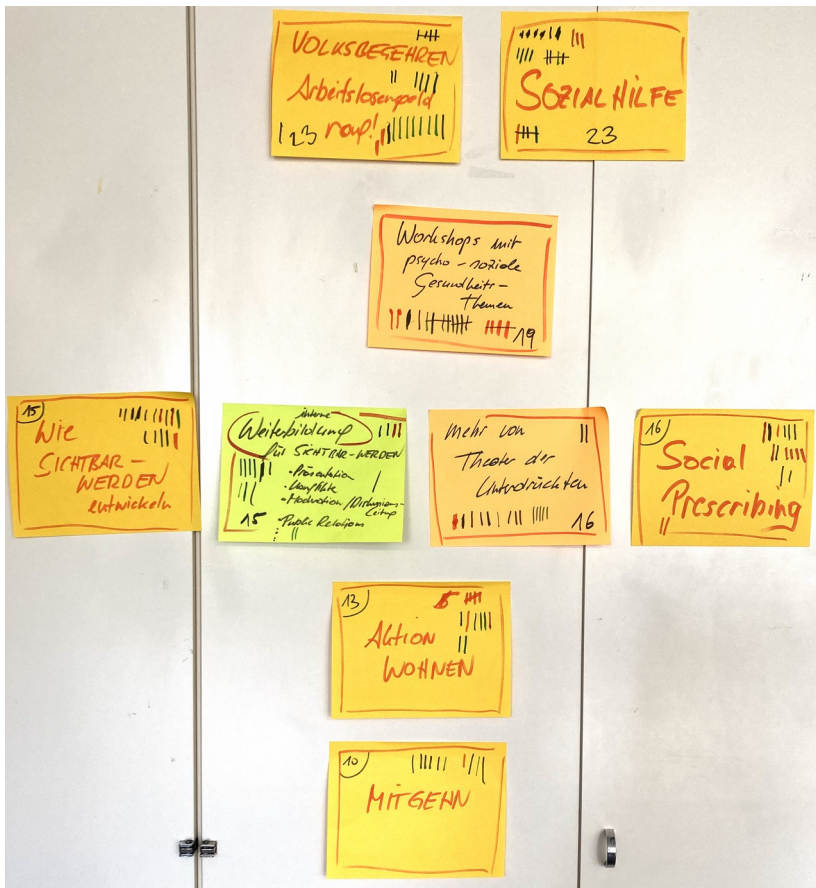 VOLKSBEGEHREN
Arbeitslosengeld
rauf!
23
SOZIALHILFE
23
Workshops mit
psycho-soziale
Gesundheits-
Themen
19
15
Wie
SICHTBAR-
WERDEN
entwickeln
interne
Weiterbildung
für SICHTBAR-WERDEN
- Präsentation
- Konflikte
- Moderation/Diskussions-
leitung
- Public Relations
15
mehr von
Theater der
Unterdrückten
16
16
Social
Prescribing
13
AKTION
WOHNEN
10
MITGEHN